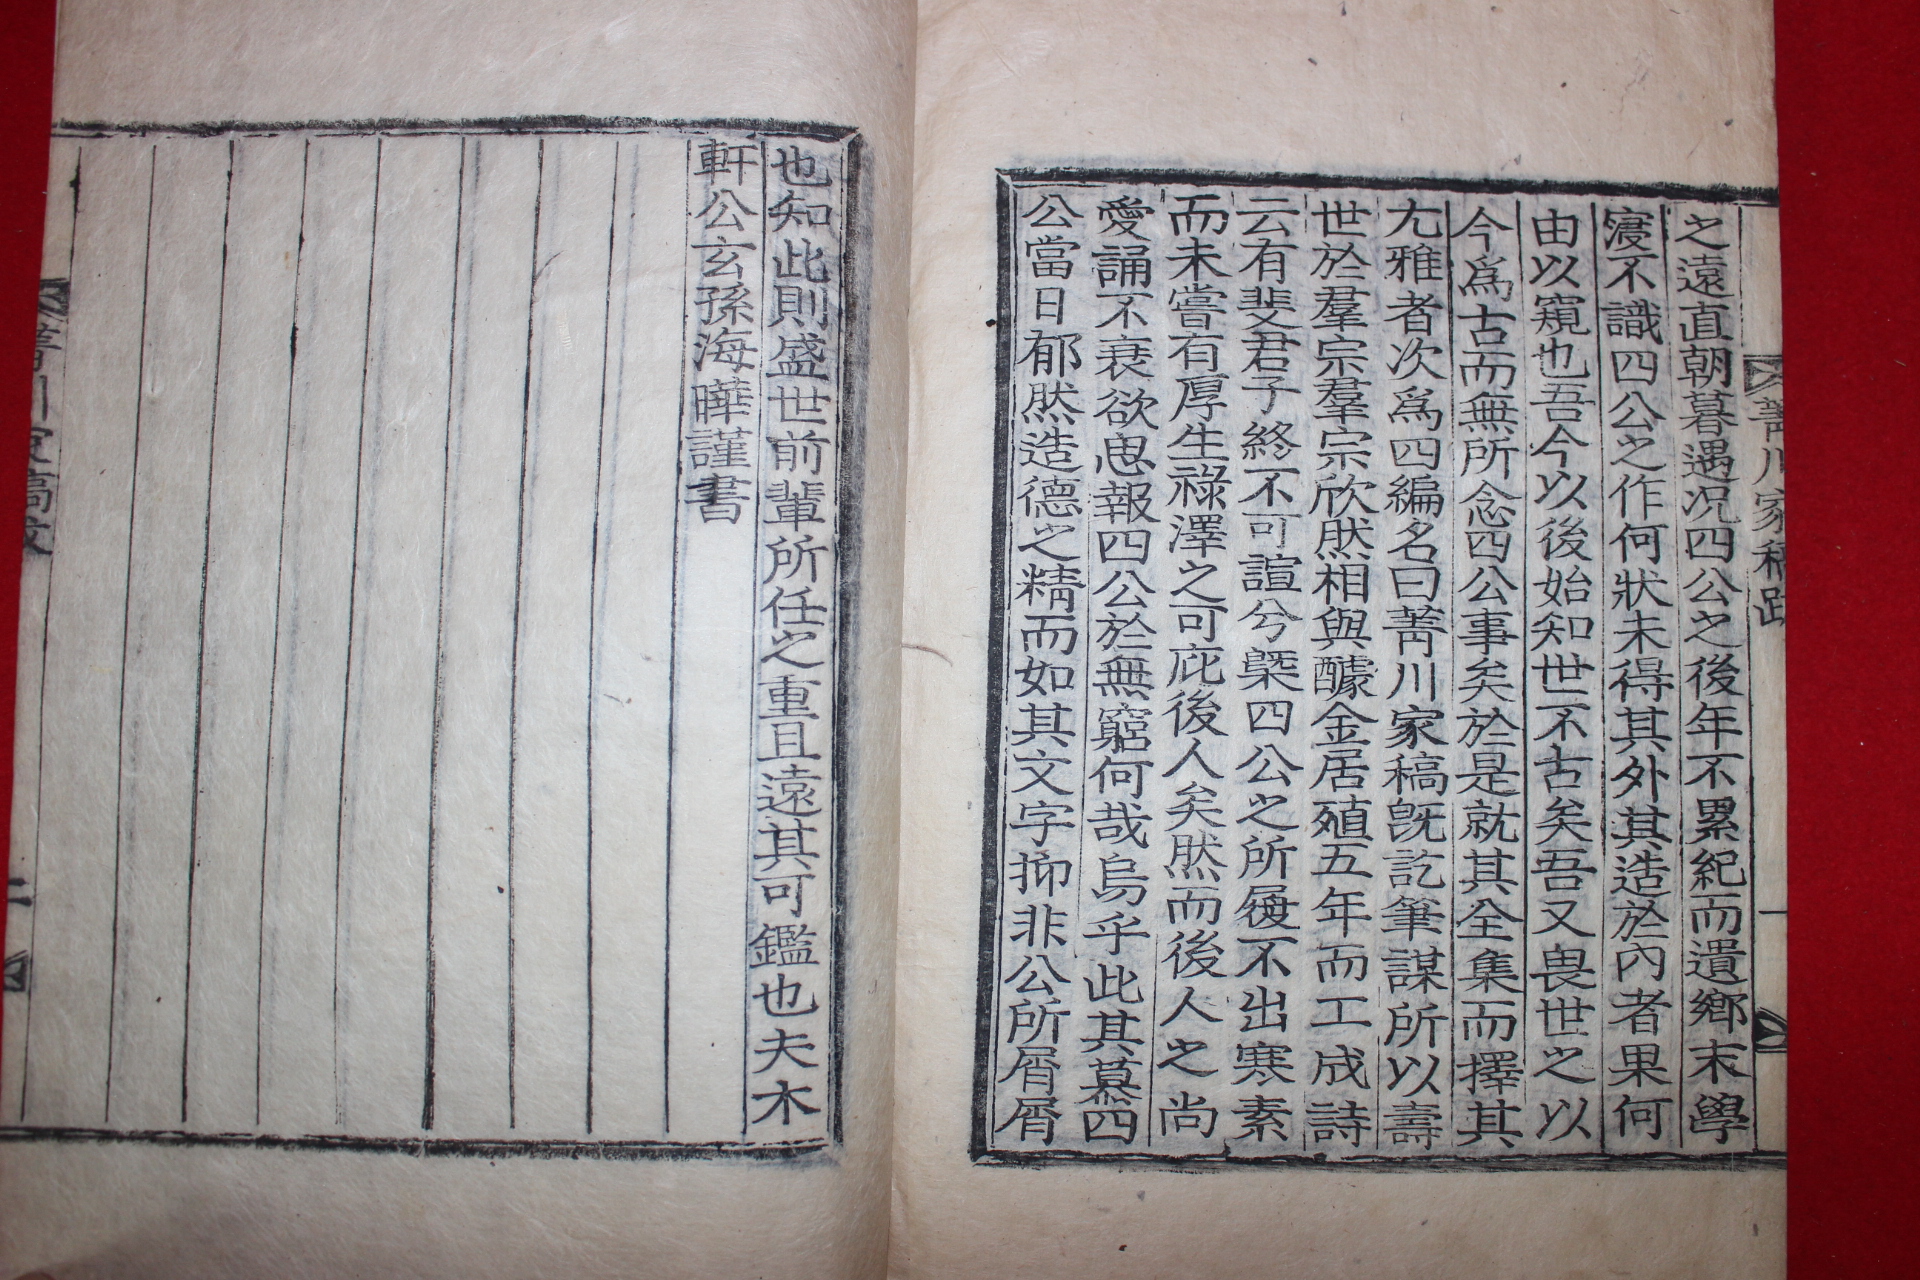 菁川家稿跋
一
之遠直朝暮遇况四公之後年不累紀而遺鄕末學
寖不識四公之作何狀未得其外其造於內者果何
由以窺也吾今以後始知世不古矣吾又畏世之以
今爲古而無所念四公事矣於是就其全集而擇其
尤雅者次爲四編名曰菁川家稿旣訖筆謀所以壽
世於羣宗羣宗欣然相與醵金居殖五年而工成詩
云有斐君子終不可諠兮槩四公之所履不出寒素
而未嘗有厚生祿澤之可庇後人矣然而後人之尚
愛誦不衰欲思報四公於無窮何哉烏乎此其慕四
公當日郁然造德之精而如其文字抑非公所屑屑
也知此則盛世前輩所任之重且遠其可鑑也夫木
軒公玄孫海曄謹書
二